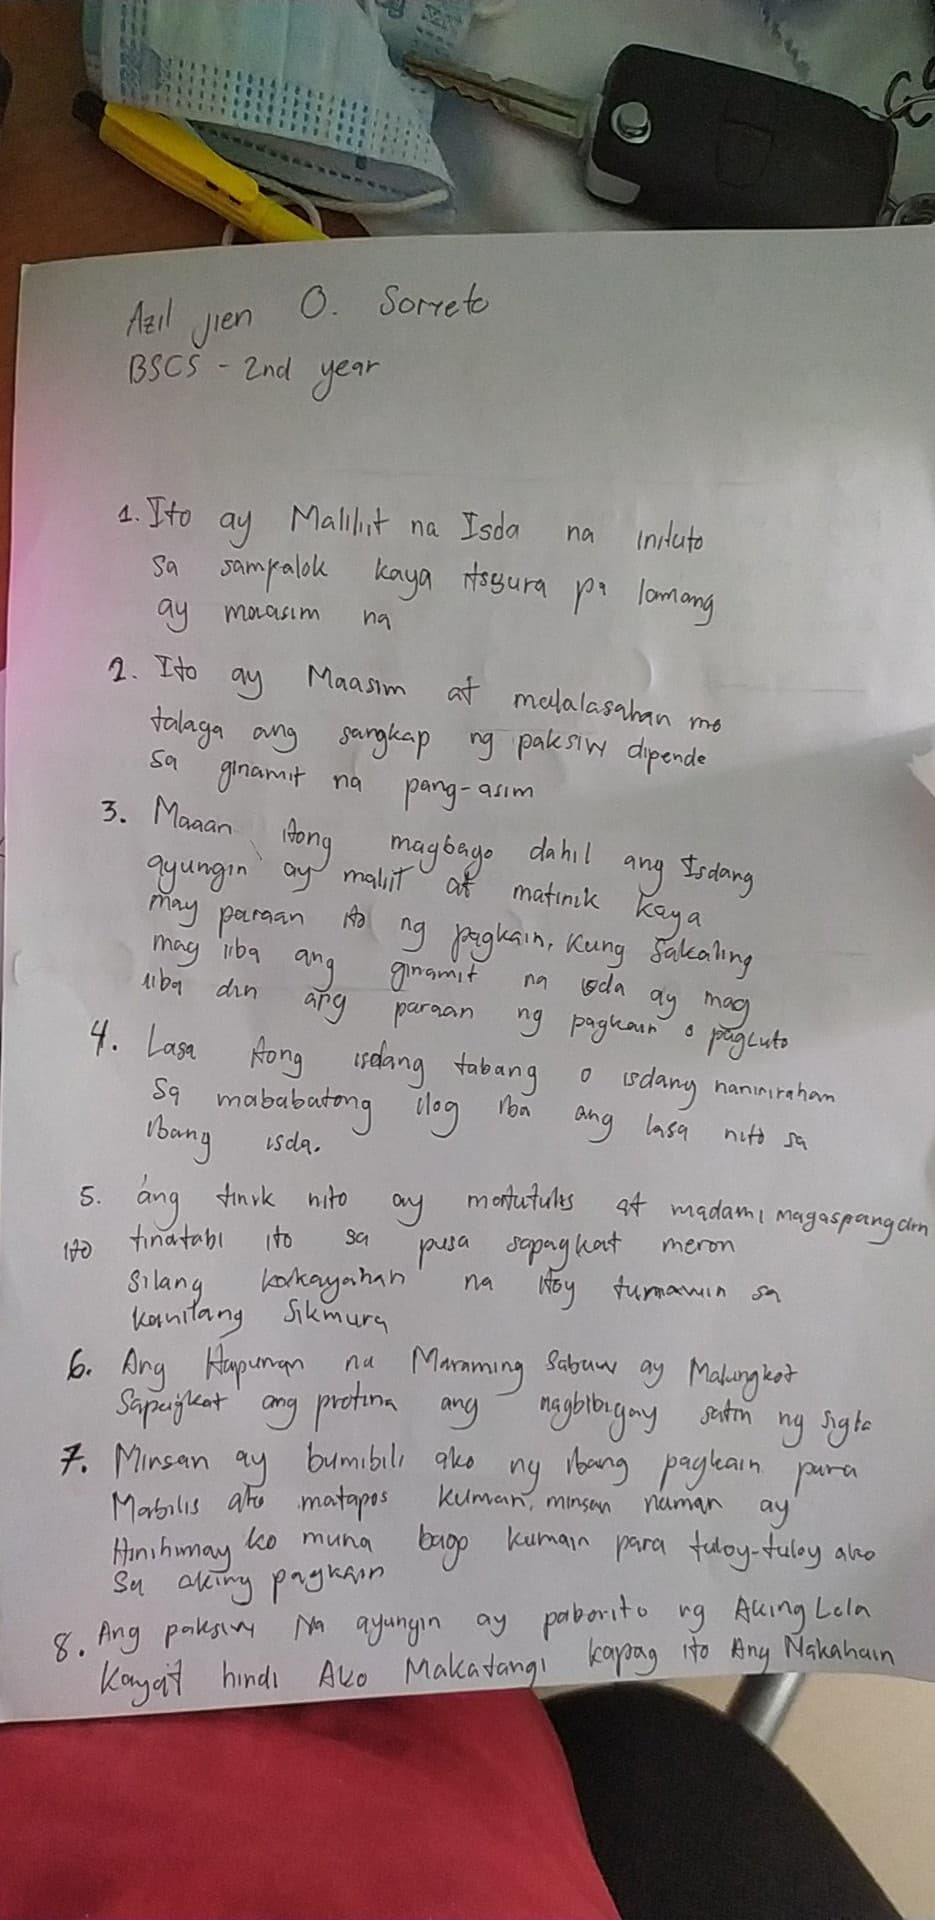 Azil jien O. Sorreto
BSCS - 2nd year
1. Ito ay Maliliit na Isda na iniluto
sa sampalok kaya itsyura pa lamang
ay maasim na
2. Ito ay Maasim at malalasahan mo
talaga ang sangkap ng paksiw dipende
sa ginamit na pang-asim
3. Maaan itong magbago dahil ang Isdang
ayungin ay maliit at matinik kaya
may paraan ito ng pagkain, kung sakaling
mag iiba ang ginamit na isda ay mag
iiba din ang paraan ng pagkain o pagluto
4. Lasa itong isdang tabang o isdang naniniraham
sa mababatong ilog iba ang lasa nito sa
ibang isda.
5. ang tinik nito ay matutulis at madami magaspang din
ito tinatabi ito sa pusa sapagkat meron
silang kakayahan na itoy tunawin sa
kanilang sikmura
6. Ang Hapunan na Maraming Sabaw ay Malungkot
Sapagkat ang protina ang nagbibigay satin ng sigla
7. Minsan ay bumibili ako ng ibang pagkain para
Mabilis ako matapos kumain, minsan naman ay
Hinihimay ko muna bago kumain para tuloy-tuloy ako
sa aking pagkain
8. Ang paksiw Na ayungin ay paborito ng Aking Lola
Kaya't hindi Ako Makatangi kapag ito Ang Nakahain